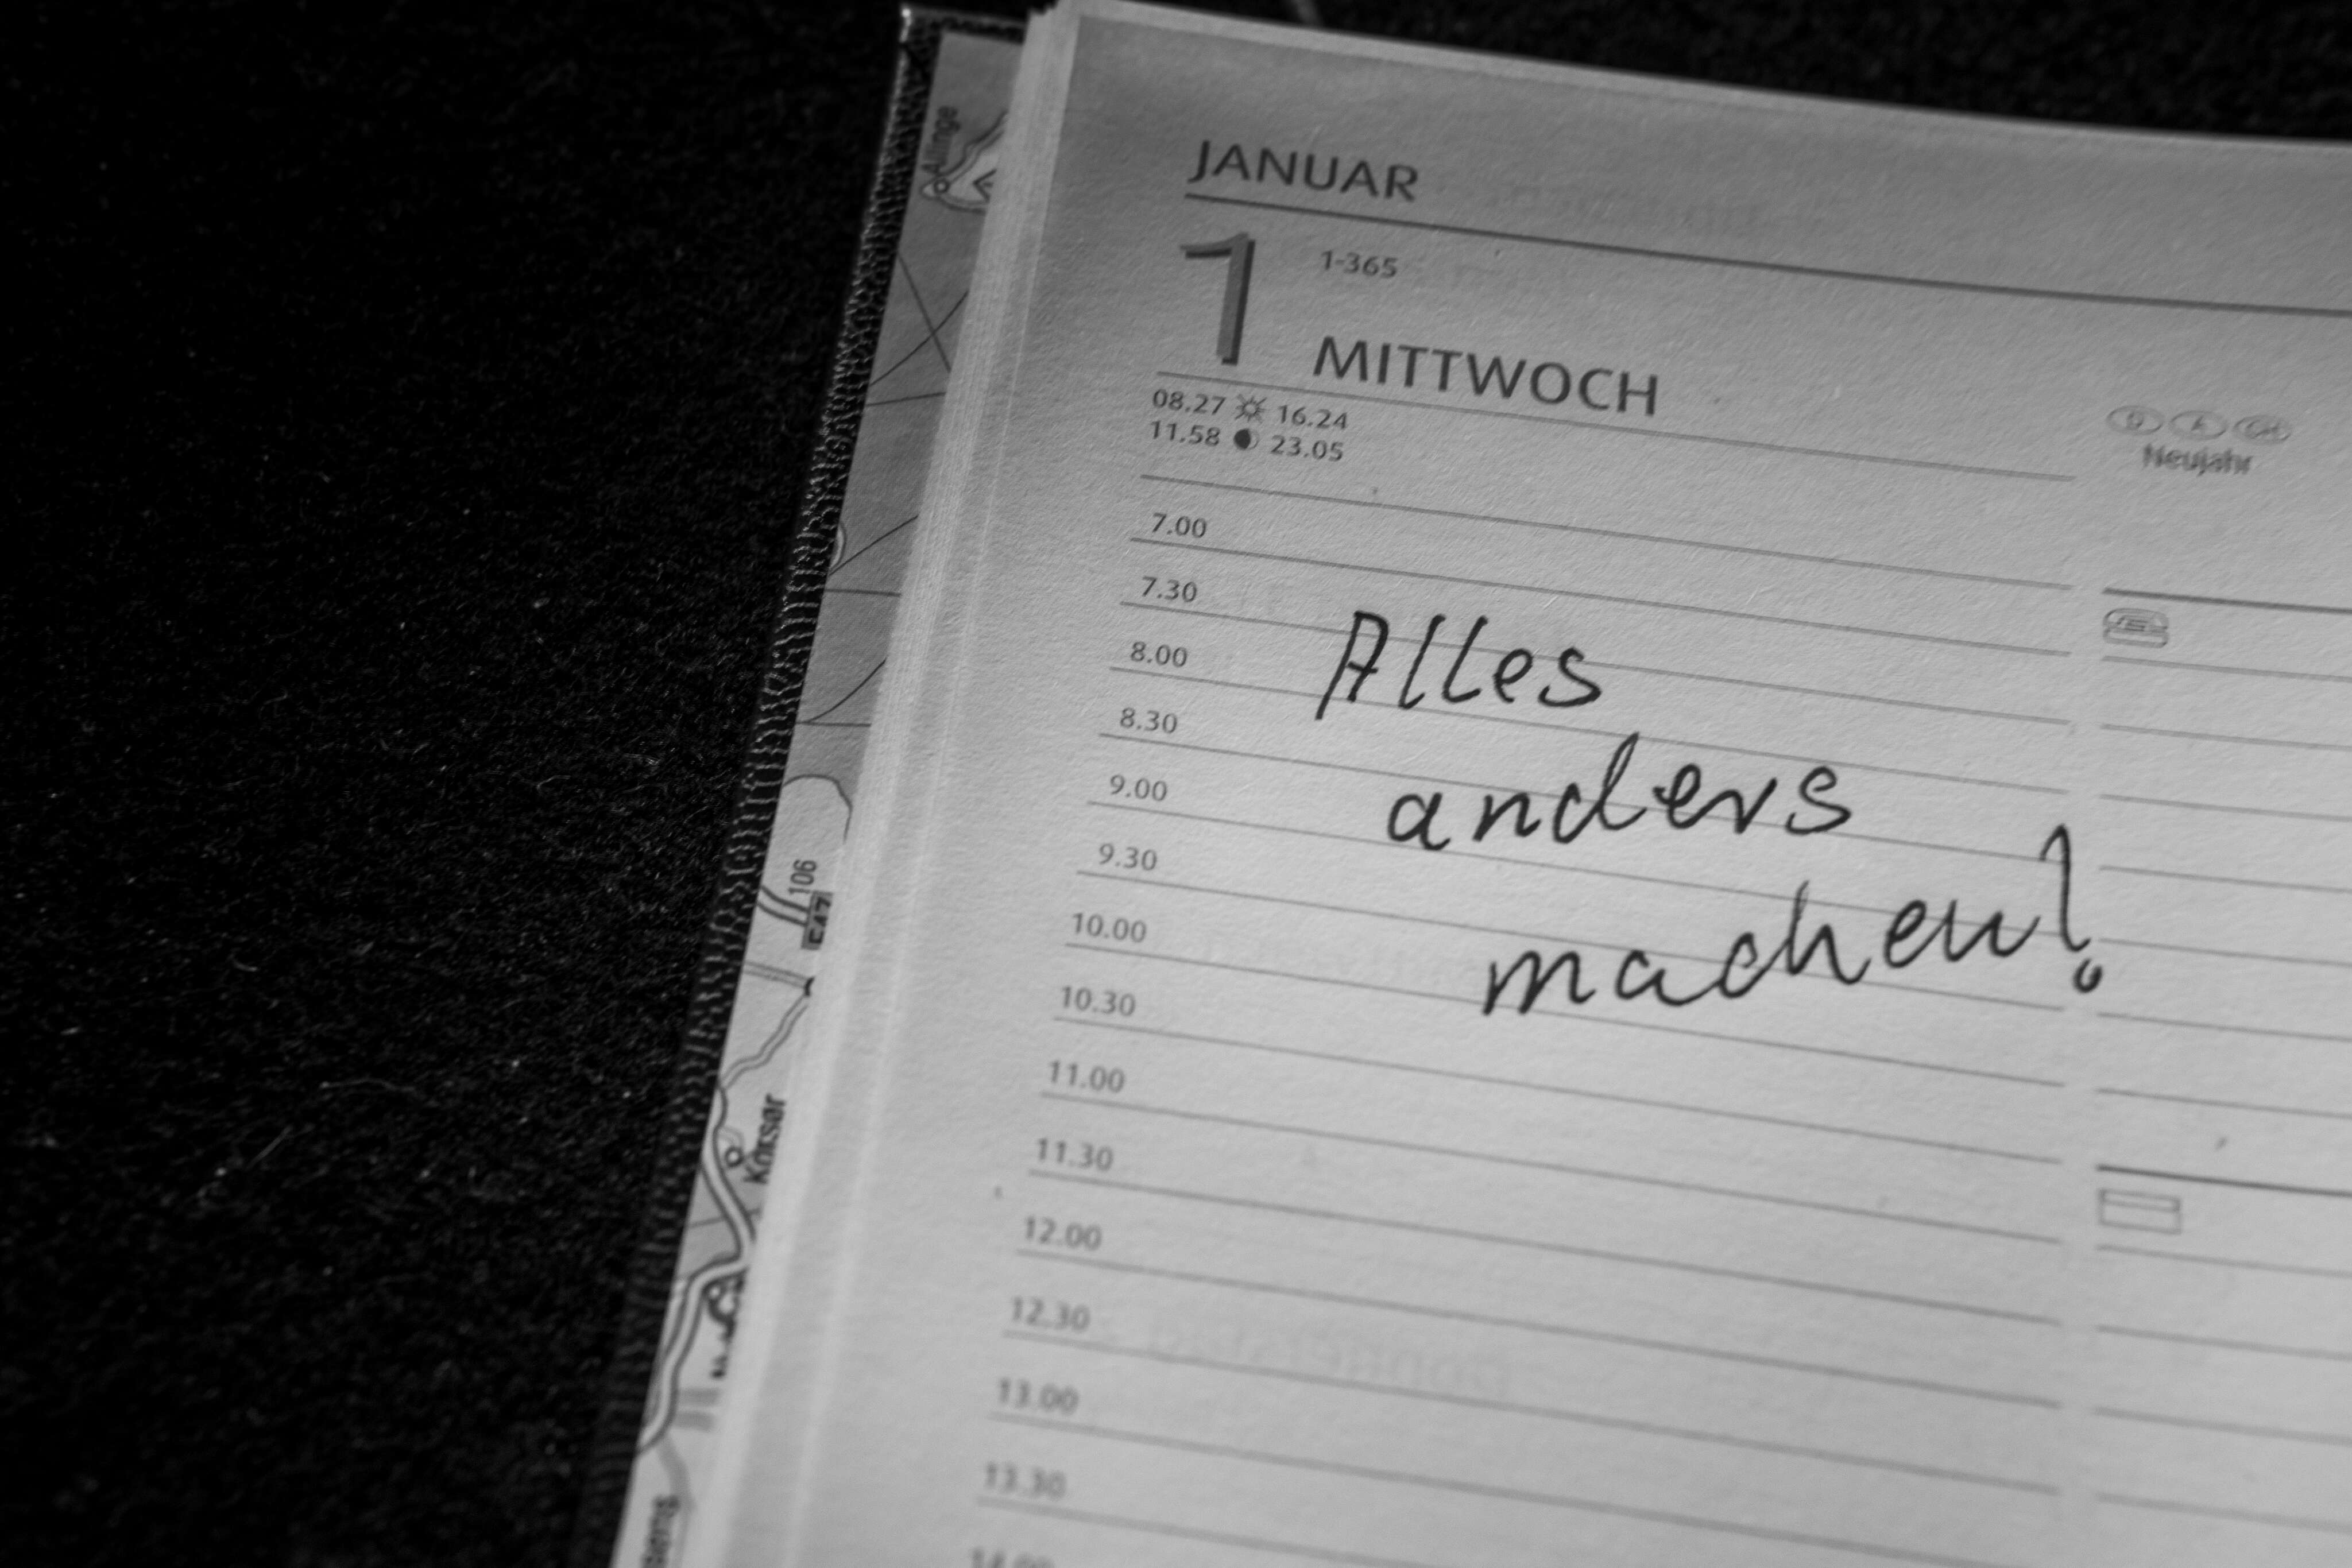 JANUAR
1 1-365
MITTWOCH
08.27 16.24
11.58 23.05
D A CH
Neujahr
7.00
7.30
8.00
8.30
9.00
9.30
10.00
10.30
11.00
11.30
12.00
12.30
13.00
13.30
14.00
Alles
anders
machen!
Allinge
106
E47
Korsør